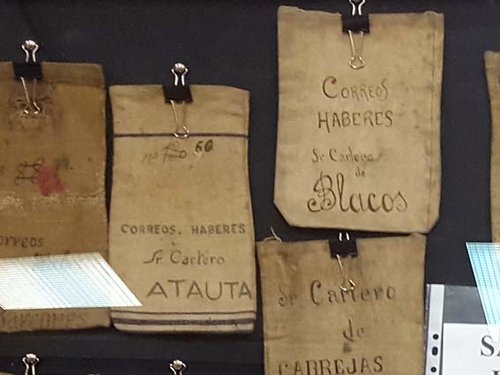 orreos
nº 60
CORREOS. HABERES
Sr. Cartero
ATAUTA
CORREOS
HABERES
Sr Cartero
de
Blacos
Sr Cartero
de
CABREJAS